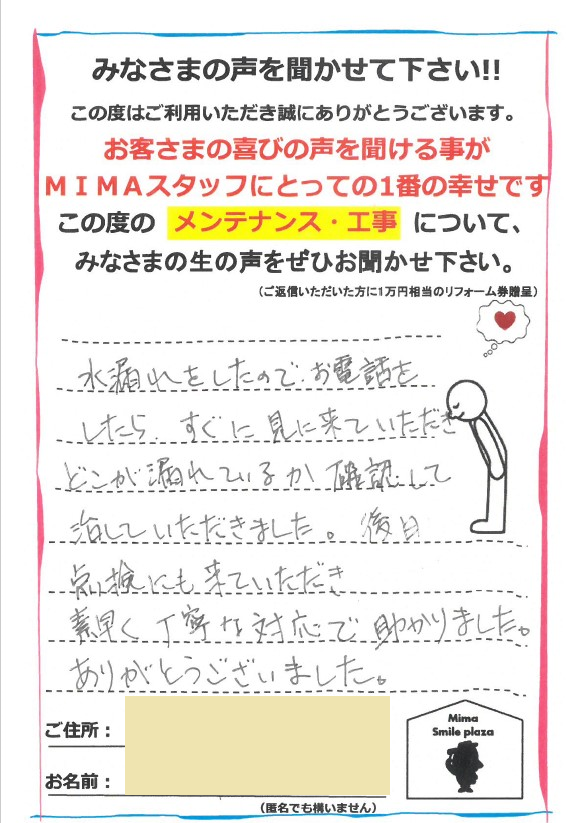 みなさまの声を聞かせて下さい!!
この度はご利用いただき誠にありがとうございます。
お客さまの喜びの声を聞ける事が
MIMAスタッフにとっての1番の幸せです
この度の メンテナンス・工事 について、
みなさまの生の声をぜひお聞かせ下さい。
(ご返信いただいた方に1万円相当のリフォーム券贈呈)
水漏れをしたので、お電話を
したら、すぐに見に来ていただき
どこが漏れているか確認して
治していただきました。後日
点検にも来ていただき
素早く丁寧な対応で助かりました。
ありがとうございました。
ご住所:
お名前:
(匿名でも構いません)
Mima
Smile plaza